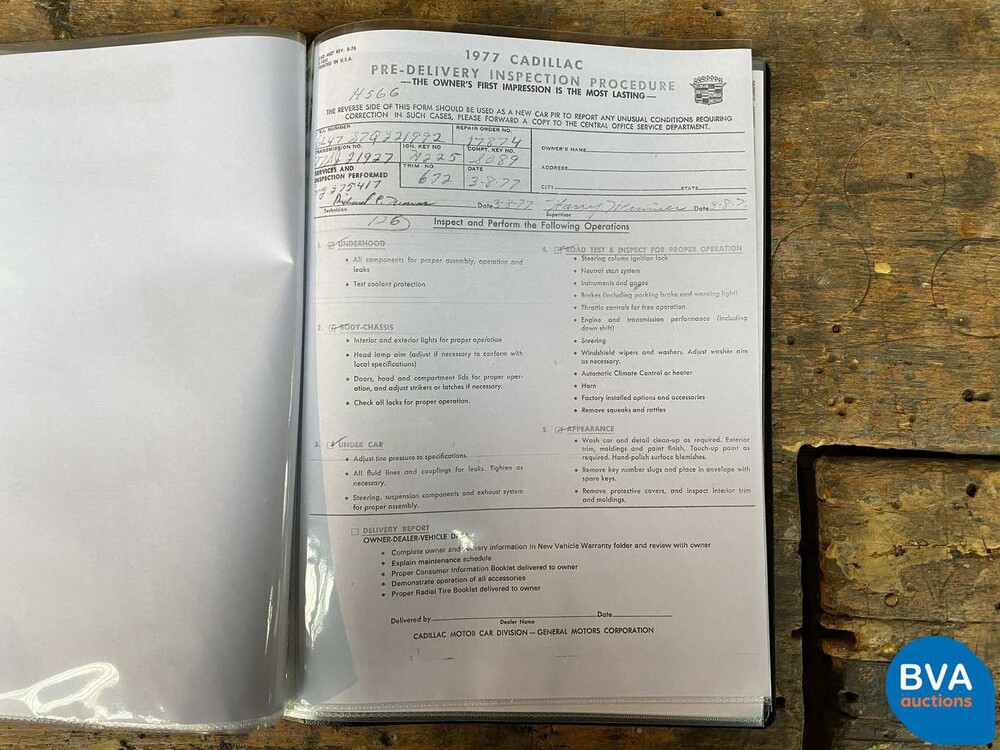 REV. 8-76
PRINTED IN U.S.A.
1977 CADILLAC
PRE-DELIVERY INSPECTION PROCEDURE
—THE OWNER'S FIRST IMPRESSION IS THE MOST LASTING—
H566
THE REVERSE SIDE OF THIS FORM SHOULD BE USED AS A NEW CAR PIR TO REPORT ANY UNUSUAL CONDITIONS REQUIRING
CORRECTION IN SUCH CASES, PLEASE FORWARD A COPY TO THE CENTRAL OFFICE SERVICE DEPARTMENT.
NUMBER REPAIR ORDER NO.
6L47 S7Q221992 17874
TRANSMISSION NO. IGN. KEY NO COMPT. KEY NO. OWNER'S NAME
21927 225 8089
SERVICES AND TRIM NO. DATE ADDRESS
INSPECTION PERFORMED 672 3-8-77
275417 CITY STATE
Richard Date 3-8-77 Harry Date
Technician Supervisor
126 Inspect and Perform the Following Operations
1. UNDERHOOD
• All components for proper assembly, operation and
leaks
• Test coolant protection
2. BODY-CHASSIS
• Interior and exterior lights for proper operation
• Head lamp aim (adjust if necessary to conform with
local specifications)
• Doors, hood and compartment lids for proper oper-
ation, and adjust strikers or latches if necessary.
• Check all locks for proper operation.
3. UNDER CAR
• Adjust tire pressure to specifications.
• All fluid lines and couplings for leaks. Tighten as
necessary.
• Steering, suspension components and exhaust system
for proper assembly.
4. ROAD TEST & INSPECT FOR PROPER OPERATION
• Steering column ignition lock
• Neutral start system
• Instruments and gages
• Brakes (including parking brake and warning light)
• Throttle controls for free operation
• Engine and transmission performance (including
down shift)
• Steering
• Windshield wipers and washers. Adjust washer aim
as necessary.
• Automatic Climate Control or heater
• Horn
• Factory installed options and accessories
• Remove squeaks and rattles
5. APPEARANCE
• Wash car and detail clean-up as required. Exterior
trim, moldings and paint finish. Touch-up paint as
required. Hand-polish surface blemishes.
• Remove key number slugs and place in envelope with
spare keys.
• Remove protective covers, and inspect interior trim
and moldings.
DELIVERY REPORT
OWNER-DEALER-VEHICLE
• Complete owner and delivery information in New Vehicle Warranty folder and review with owner
• Explain maintenance schedule
• Proper Consumer Information Booklet delivered to owner
• Demonstrate operation of all accessories
• Proper Radial Tire Booklet delivered to owner
Delivered by Date
Dealer Name
CADILLAC MOTOR CAR DIVISION — GENERAL MOTORS CORPORATION
BVA
auctions